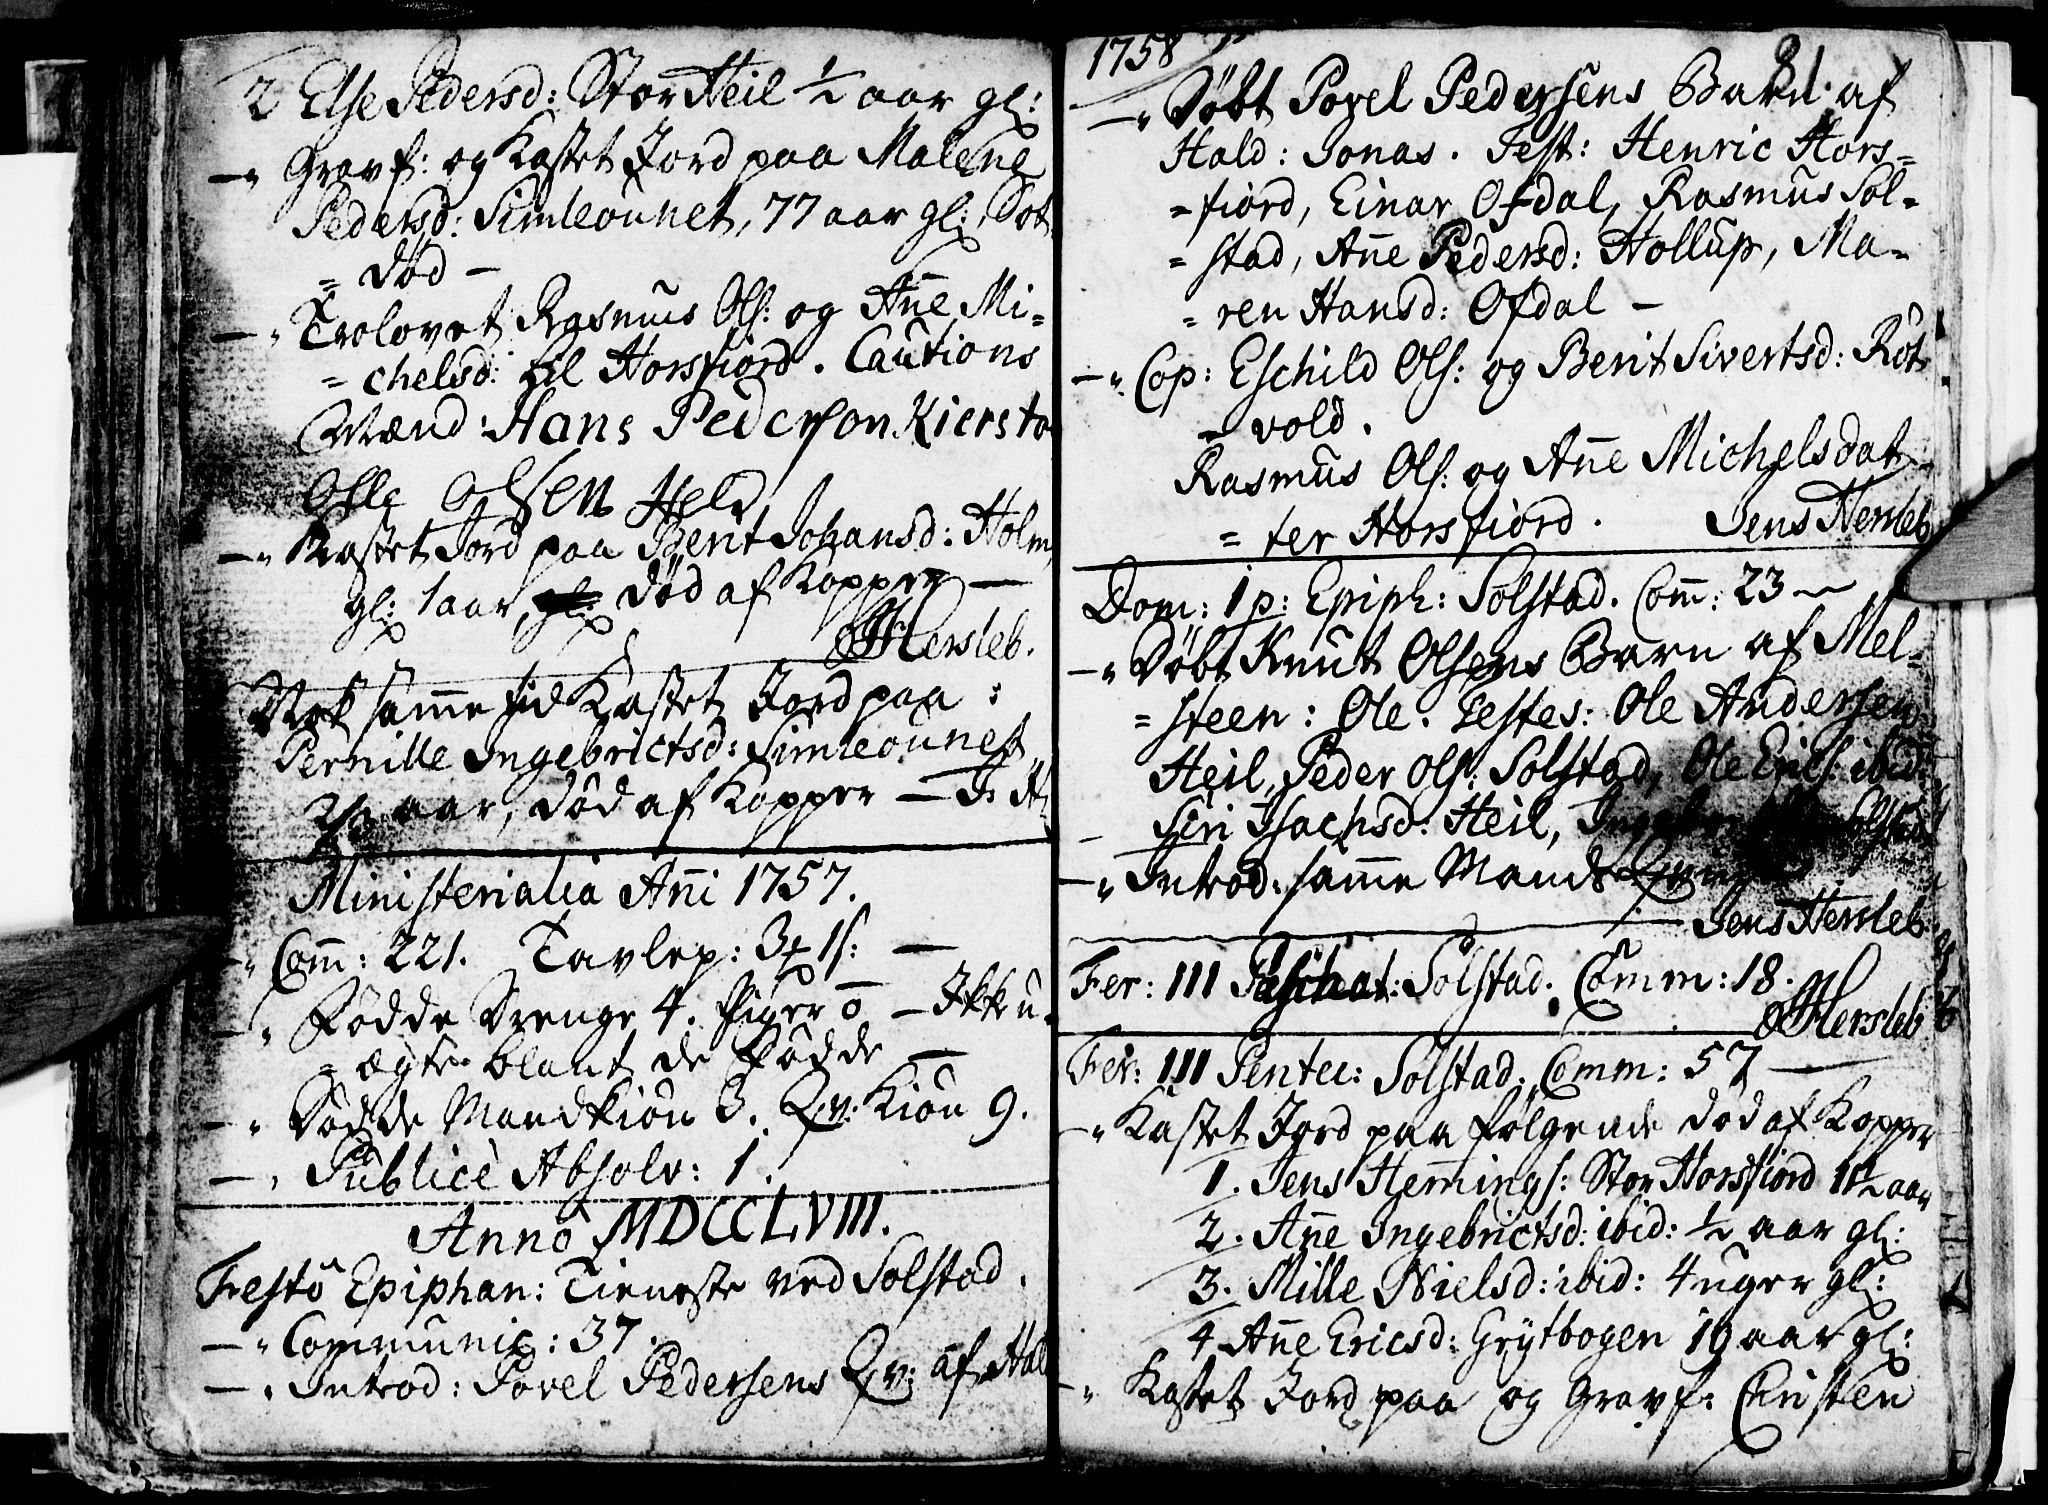 2 Else Pedersd: Stor Heil ½ aar gl:
—" Gravf: og Kastet Jord paa Malene
Pedersd: Simleöunet, 77 aar gl: Sot
= död —
—" Trolovet Rasmus Ols: og Añe Mi=
= chelsd: til Horsfiord. Cautions
Mænd: Hans Pederson Kiersta
Olle Olsen Held
—" Kastet Jord paa Berit Johansd: Holm
gl: 1 aar, död af Kopper —
JHersleb.
Nok samme tid Kastet Jord paa:
Pernille Ingebrictsd: Simleöunet
2½ aar, död af Kopper — J. H:
Ministerialia Añi 1757.
—" Com̃: 221. Tavlep: 3 1s: —
—" Födde Drenge 4. Piger 0 — Ikke u=
= ægte blant de Födde —
—" Dödde Mandkiön 3. Qv: Kiön 9.
—" Publicè Absolv: 1.
Anno MDCCLVIII.
Festô Epiphan: Tieneste ved Solstad.
—" Communic: 37.
—" Introd: Povel Pedersens Qv: af Hal
1758
81.
—" Döbt Povel Pedersens Barn af
Hald: Jonas. Test: Henric Hors=
= fiord, Einar Ofdal, Rasmus Sol=
= stad, Añe Pedersd: Hollup, Ma=
= ren Hansd: Ofdal —
—" Cop: Eschild Ols: og Berit Sivertsd: Röt
= vold.
Rasmus Ols: og Añe Michelsdat
= ter Horsfiord. Jens Hersleb
Dom: 1 p: Epiph: Solstad. Com̃: 23 —
—" Döbt Knut Olsens Barn af Mel=
= steen: Ole. Testes: Ole Andersen
Heil, Peder Ols: Solstad, Ole Erics: ibid:
Siri Isachsd: Heil, Solstad
—" Introd: samme Mands
Jens Hersleb
Fer: III Paschat: Solstad. Comm: 18.
JHersleb
Fer: III Pentec: Solstad. Comm: 57 —
—" Kastet Jord paa fölgende död af Kopper
1. Jens Hem̃ings: Stor Horsfiord 1½ aar
2. Añe Ingebrictsd: ibid: ½ aar gl:
3. Mille Nielsd: ibid: 4 uger gl:
4 Añe Ericsd: Grÿtbogen 10 aar gl:
—" Kastet Jord paa og Gravf: Christen